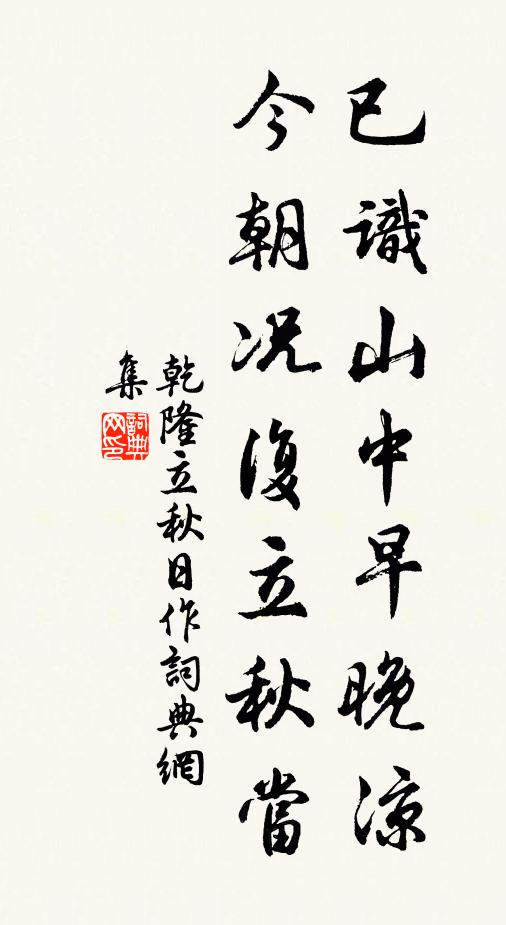 已識山中早晚凉
今朝况復立秋當
乾隆立秋日作詞典網
集
詞典
网印